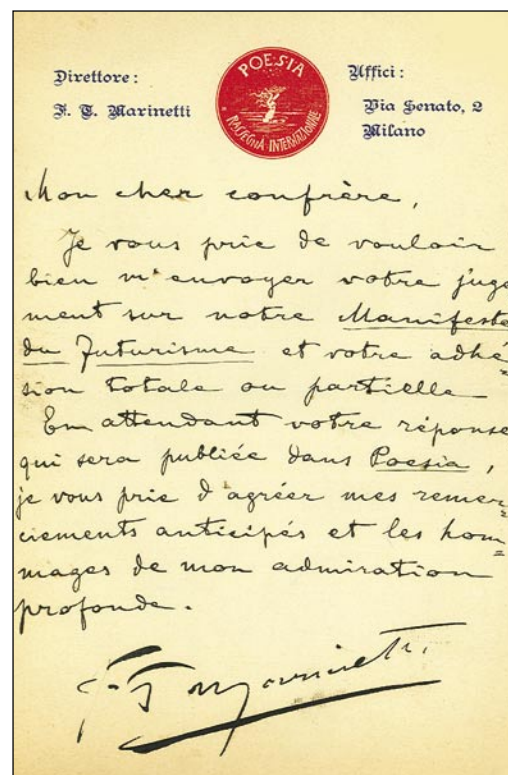 Direttore:
F. T. Marinetti
POESIA
RASSEGNA INTERNAZIONALE
Uffici:
Via Senato, 2
Milano
Mon cher confrère,
Je vous prie de vouloir
bien m'envoyer votre juge
ment sur notre Manifeste
du Futurisme et votre adhé-
sion totale ou partielle
En attendant votre réponse
qui sera publiée dans Poesia,
je vous prie d'agréer mes remer-
ciements anticipés et les hom-
mages de mon admiration
profonde.
F. T. Marinetti